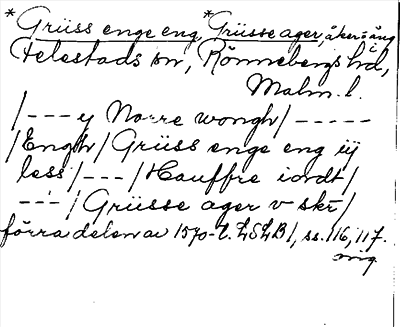 *Grüss enge eng, *Grüsse ager, åker o äng i
Felestads sn, Rönnebergs hd,
Malm. l.
/--- y Norre wongh/-----
/Engh/Grüss enge eng iij
less/---/Hauffre iordt/
---/Grüsse ager v skr/
förra delen av 1570-t. LSLB1, ss. 116, 117.
orig